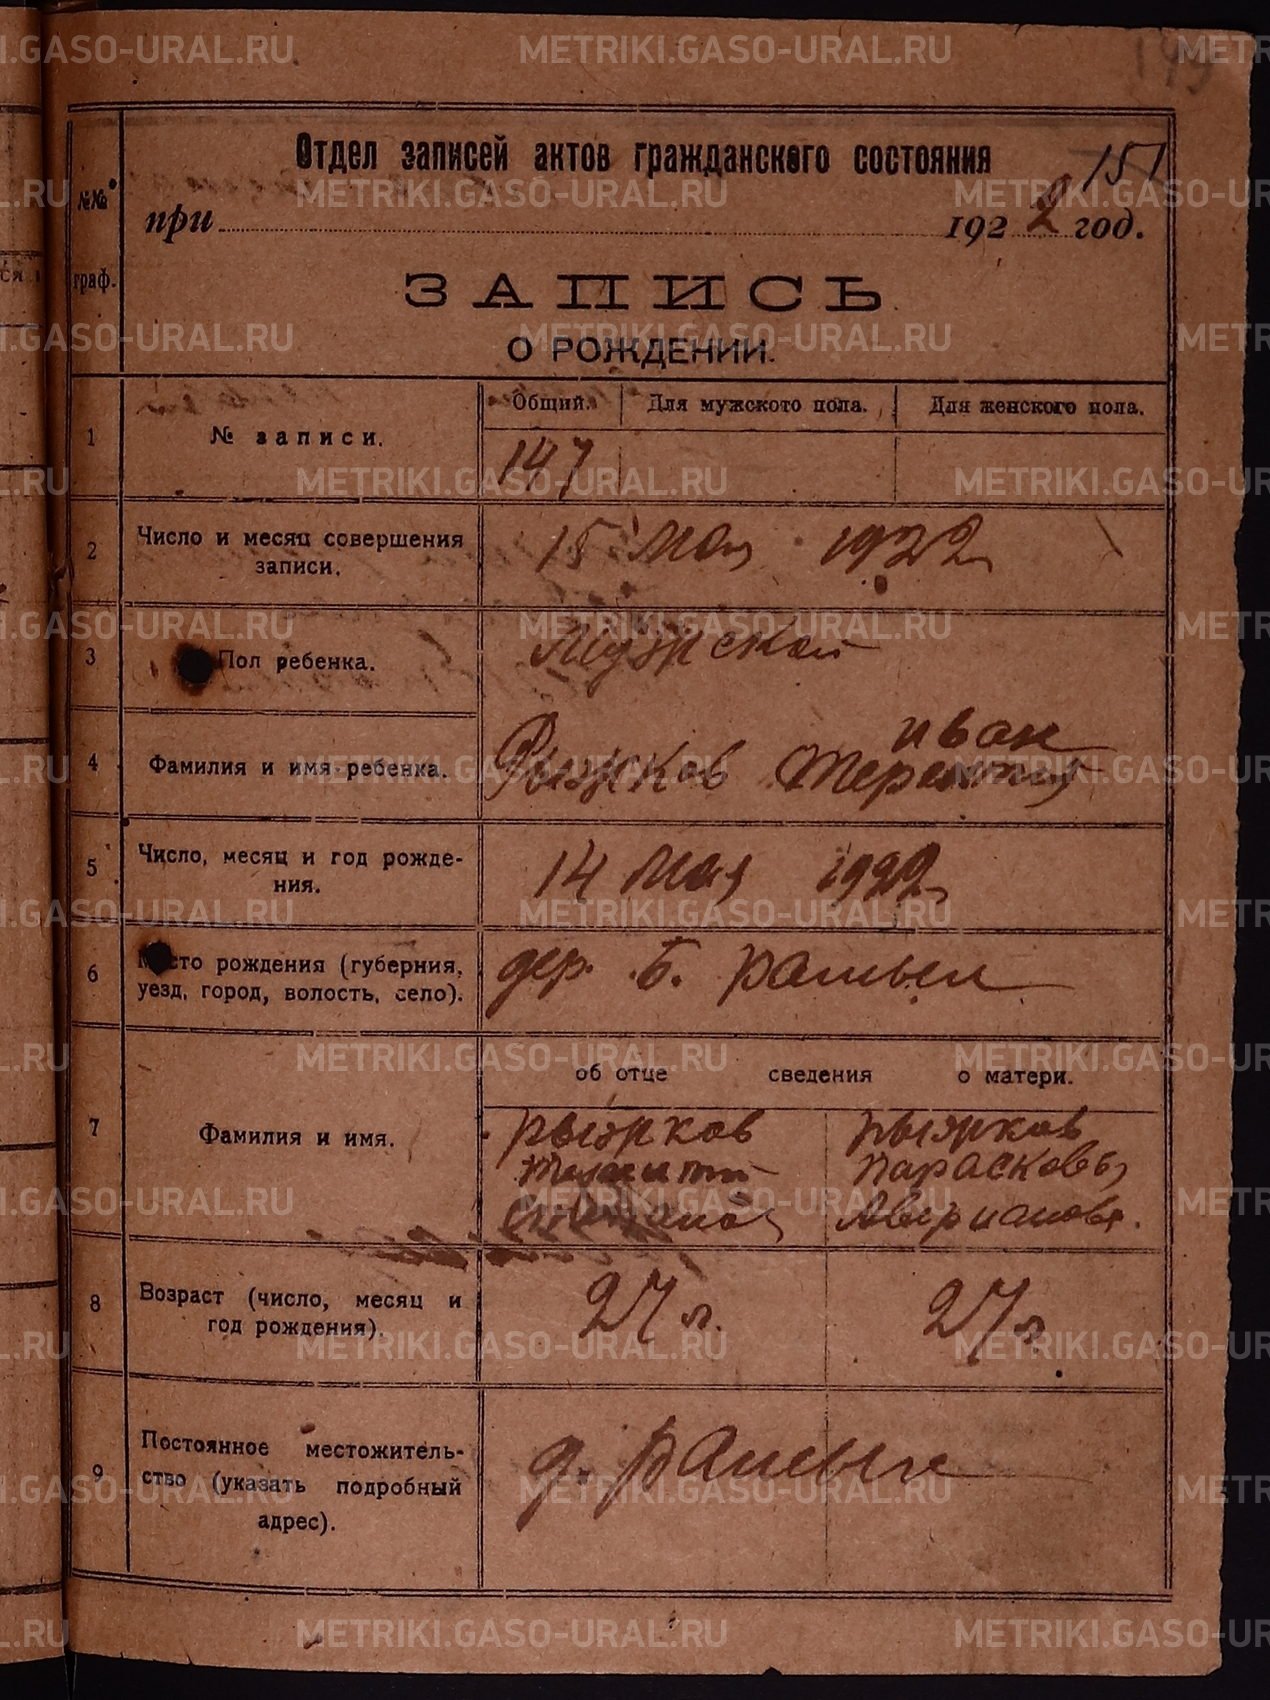 149
151
Отдел записей актов гражданского состояния
при 1922 год.
№№ граф.
ЗАПИСЬ
О РОЖДЕНИИ.
Общий. Для мужского пола. Для женского пола.
1 № записи. 147
2 Число и месяц совершения записи. 15 Мая 1922
3 Пол ребенка. Мужской
Иван
4 Фамилия и имя ребенка. Рыжков
5 Число, месяц и год рождения. 14 Мая 1922
6 Место рождения (губерния, уезд, город, волость, село). дер. Б.
об отце сведения о матери.
7 Фамилия и имя. Рыжков Рыжков
Парасковья
Аверианова.
8 Возраст (число, месяц и год рождения). 27 л. 27 л
9 Постоянное местожительство (указать подробный адрес). д.
METRIKI.GASO-URAL.RU